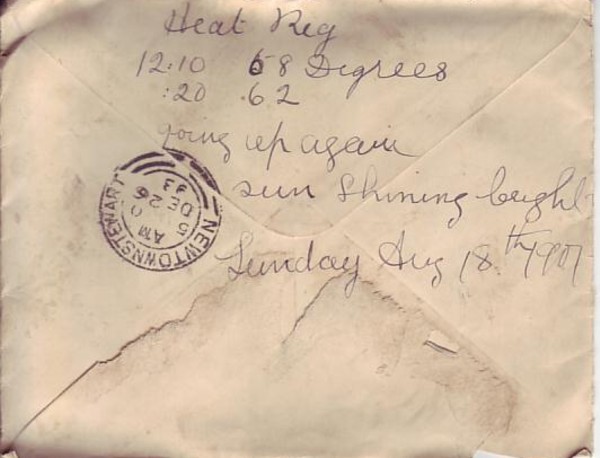 Heat Reg
12.10 68 Degrees
:20 .62
going up again
sun shining bright
Sunday Aug 18th 1907
NEWTOWNSTEWART
AM
DE 26